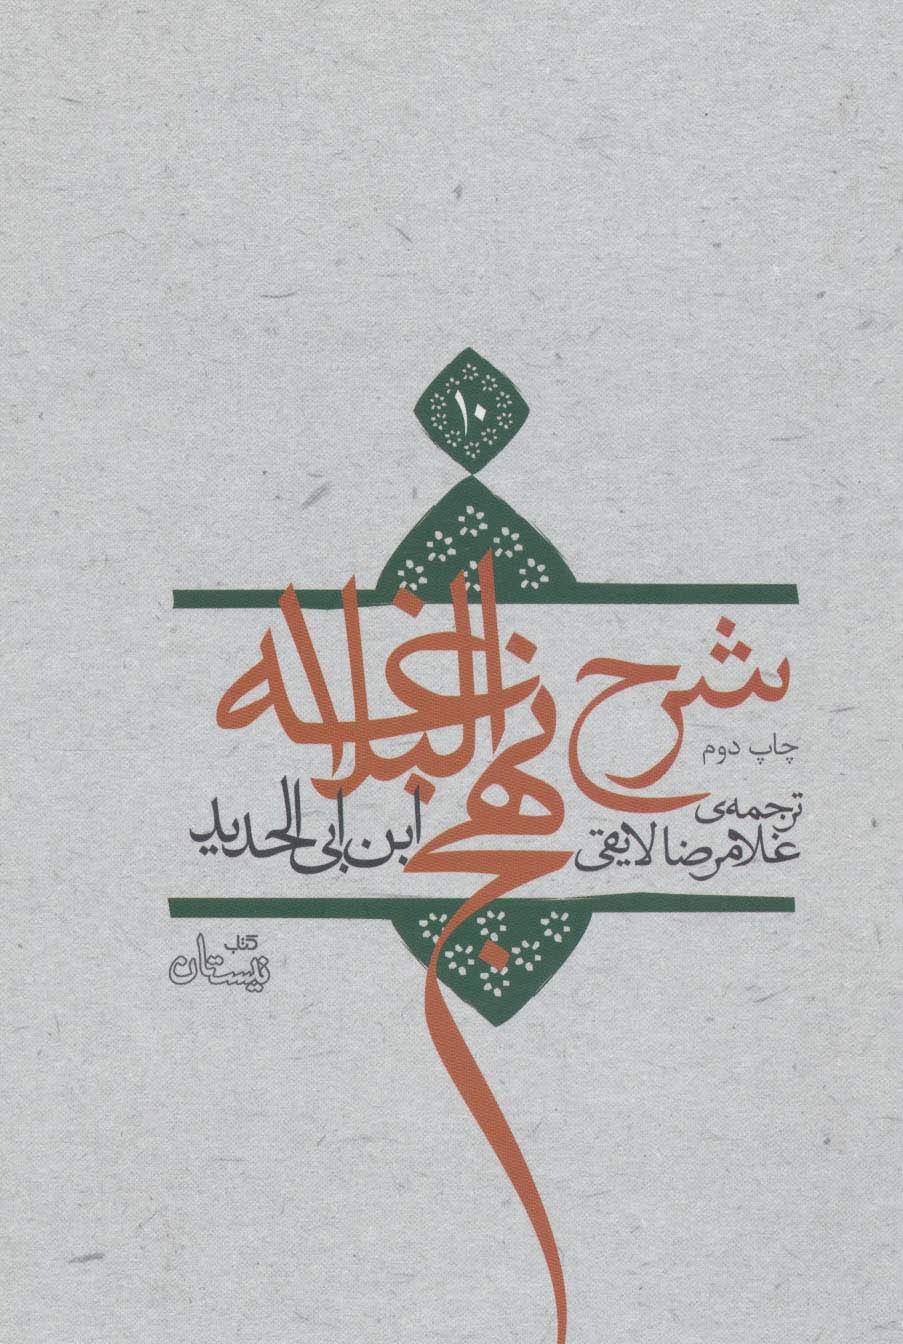 ۱۰
شرح نهج البلاغه
چاپ دوم
ترجمه‌ی
غلامرضا لایقی
ابن ابی الحدید
کتاب
نیستان